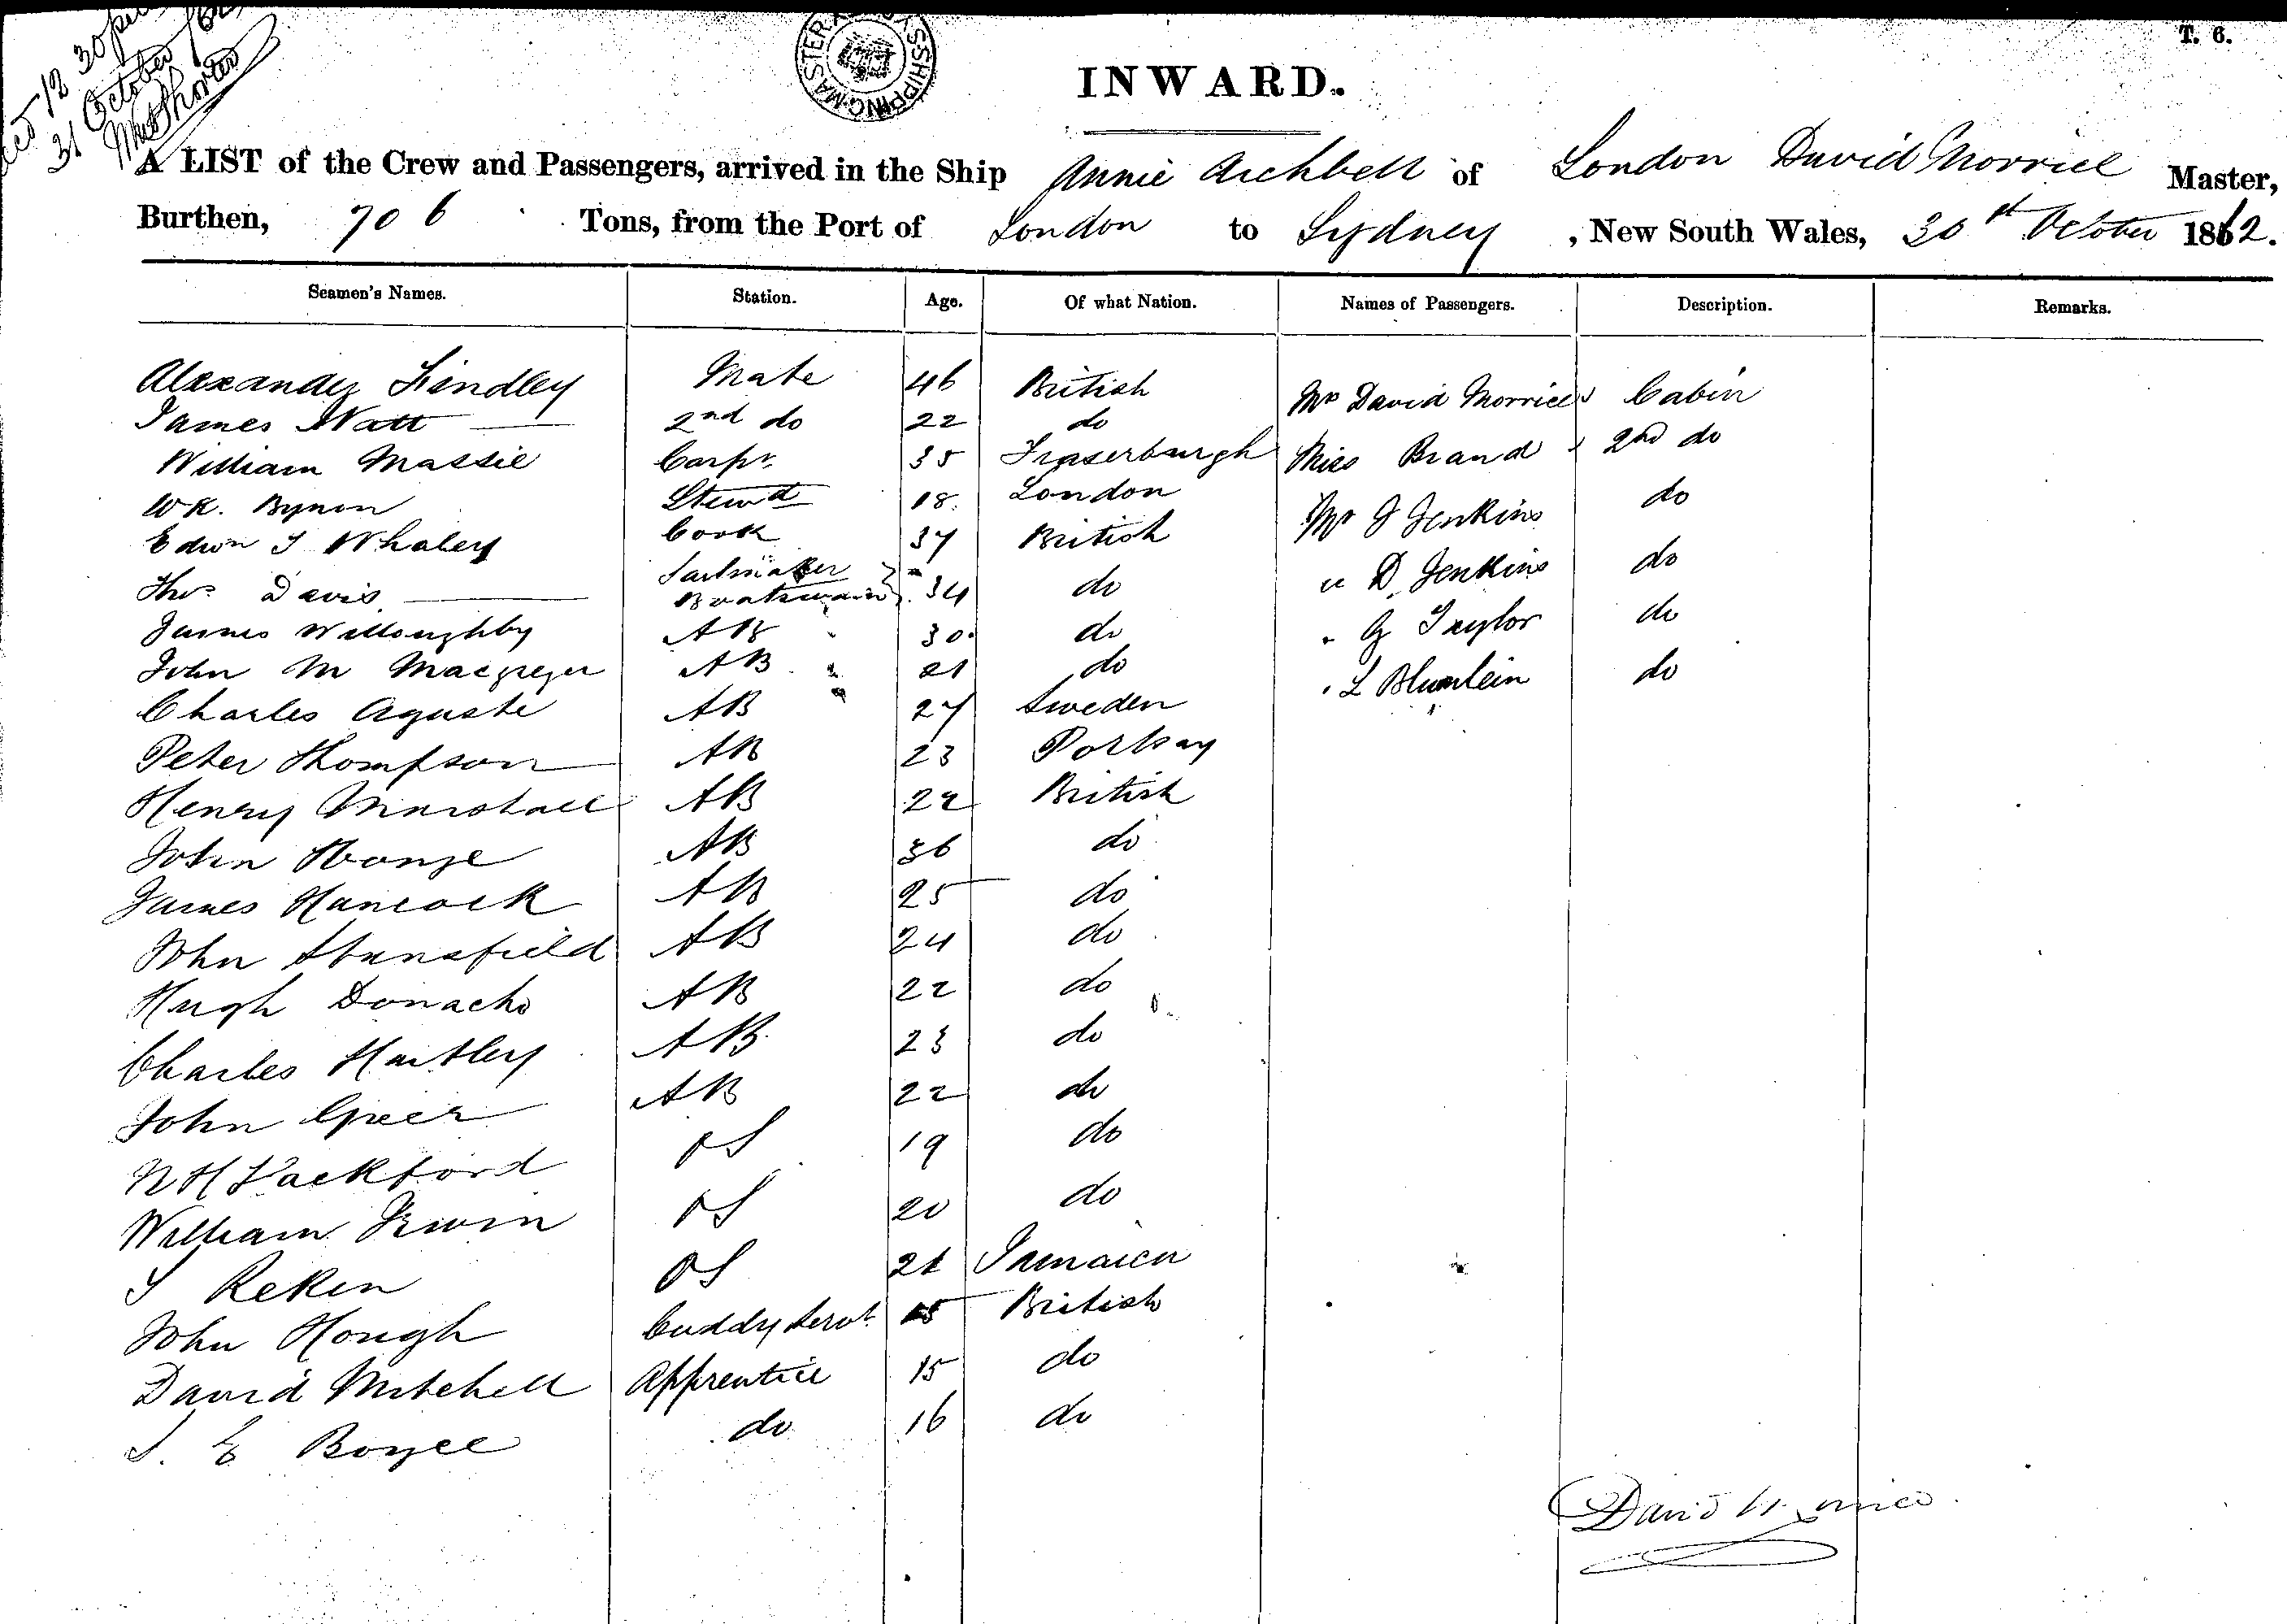 T. 6.
12 30
31 October
MASTER SHIPPING
INWARD.
A LIST of the Crew and Passengers, arrived in the Ship Annie Archbell of London David Morrice Master,
Burthen, 706 Tons, from the Port of London to Sydney, New South Wales, 30th October 1862.
Seamen's Names. Station. Age. Of what Nation. Names of Passengers. Description. Remarks.
Alexander Lindley Mate 46 British Mrs David Morrice Cabin
James Watt 2nd do 22 do Miss Brand 2nd do
William Massie Carpr. 35 Fraserburgh Mr J Jenkins do
W K. Bynon Stewd 18. London " D. Jenkins do
Edwin J Whaley Cook 37 British " G Taylor do
Thos. Davis Sailmaker Boatswain 34 do " L Blumlein do
James Willoughby AB 30. do
John M Macgreger AB 21 do
Charles Aguste AB 27 Sweden
Peter Thompson AB 23
Henry Marshall AB 22 British
John AB 36 do
James Hancock AB 25 do
John Stansfield AB 24 do
Hugh Donacho AB 22 do
Charles Hartley AB 23 do
John Greer AB 22 do
N H Packford OS 19 do
William Irwin OS 20 do
S Reken OS 21 Jamaica
John Hough Cuddy Servt. 15 British
David Mitchell Apprentice 15 do
J. E Boyce do 16 do
David Morrice